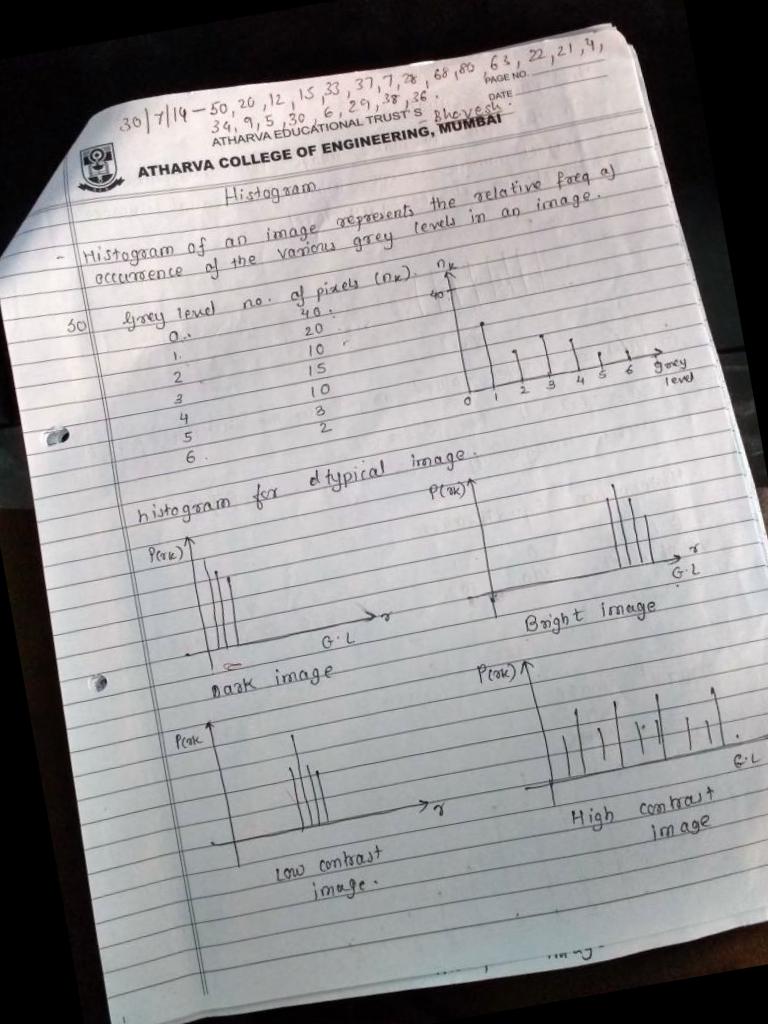 30/7/19 - 50, 20, 12, 15, 33, 37, 7, 28, 68, 80, 63, 22, 21, 4,
34, 9, 5, 30, 6, 29, 38, 36.
PAGE NO.
DATE
ATHARVA EDUCATIONAL TRUST'S
Bhavesh.
ATHARVA COLLEGE OF ENGINEERING, MUMBAI
Histogram
- Histogram of an image represents the relative freq of
occurrence of the various grey levels in an image.
so
Grey level no. of pixels (nk).
0 40
1 20
2 10
3 15
4 10
5 3
6 2
nk
40
0 1 2 3 4 5 6 grey
level
histogram for typical image.
P(rk)
r
G.L
Dark image
P(rk)
r
G.L
Bright image
P(rk
r
Low contrast
image.
P(rk)
G.L
High contrast
image